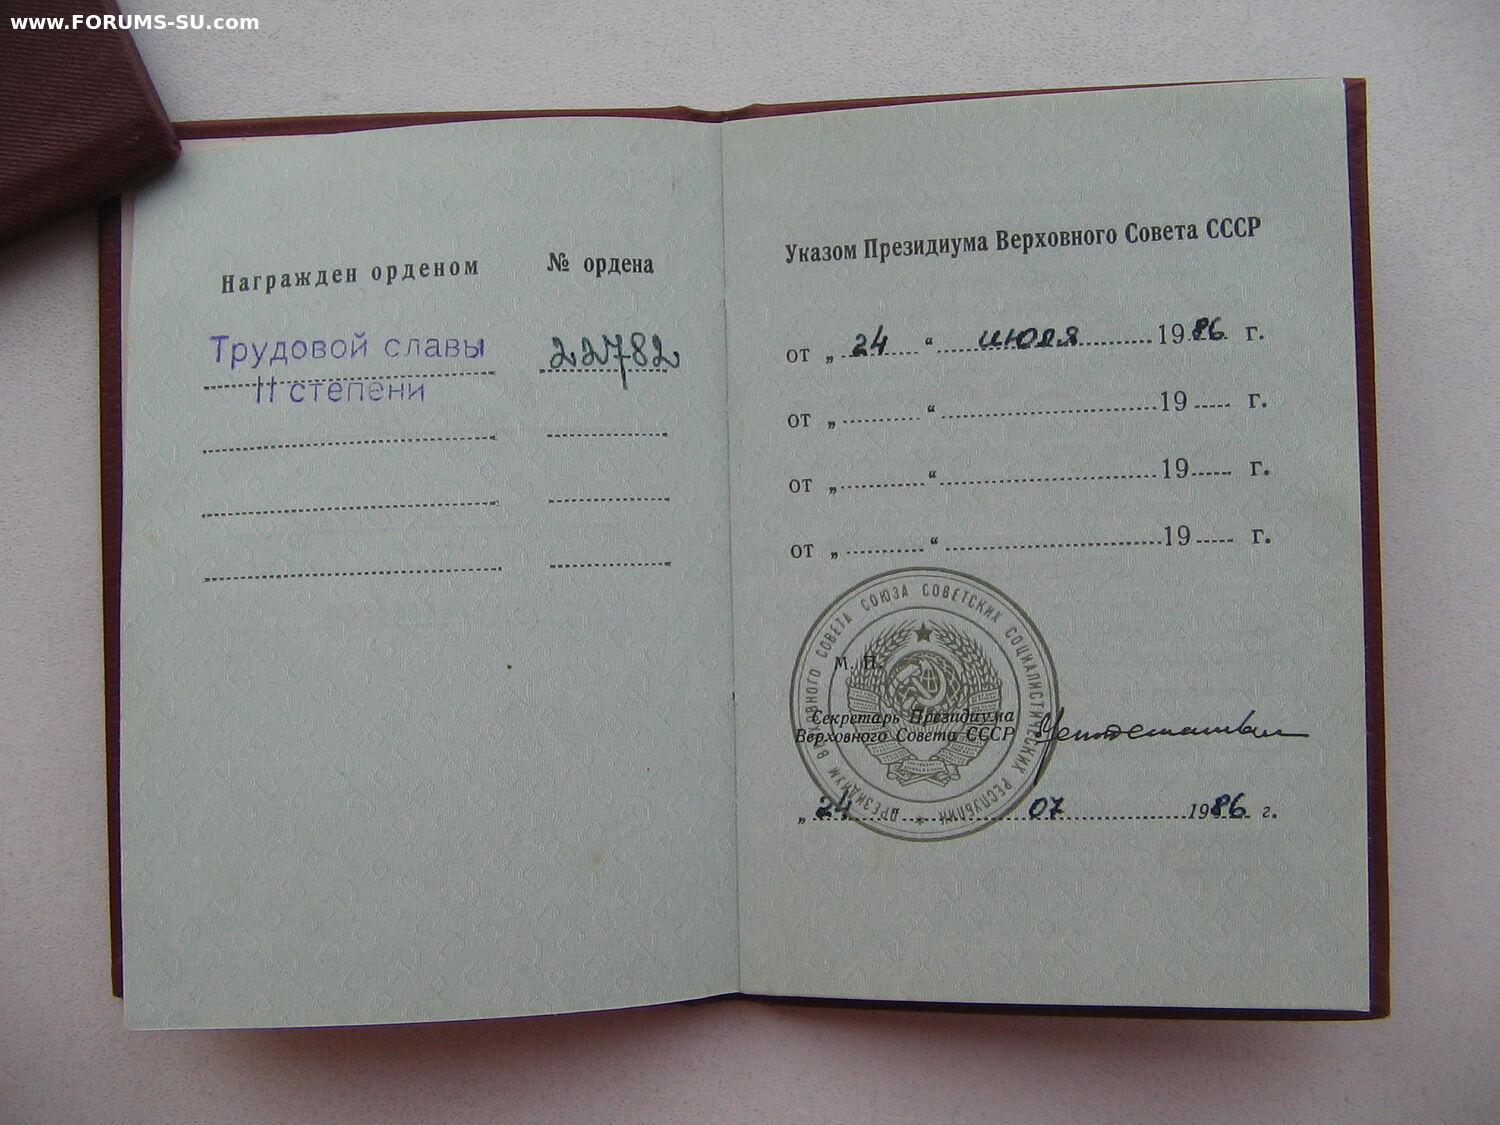 www.FORUMS-SU.com
Награжден орденом № ордена
Трудовой славы 22782
II степени
Указом Президиума Верховного Совета СССР
от „ 24 “ июля 1986 г.
от „ “ 19 г.
от „ “ 19 г.
от „ “ 19 г.
ПРЕЗИДИУМ ВЕРХОВНОГО СОВЕТА СОЮЗА СОВЕТСКИХ СОЦИАЛИСТИЧЕСКИХ РЕСПУБЛИК
М. П.
Секретарь Президиума
Верховного Совета СССР
„ 24 “ 07 1986 г.